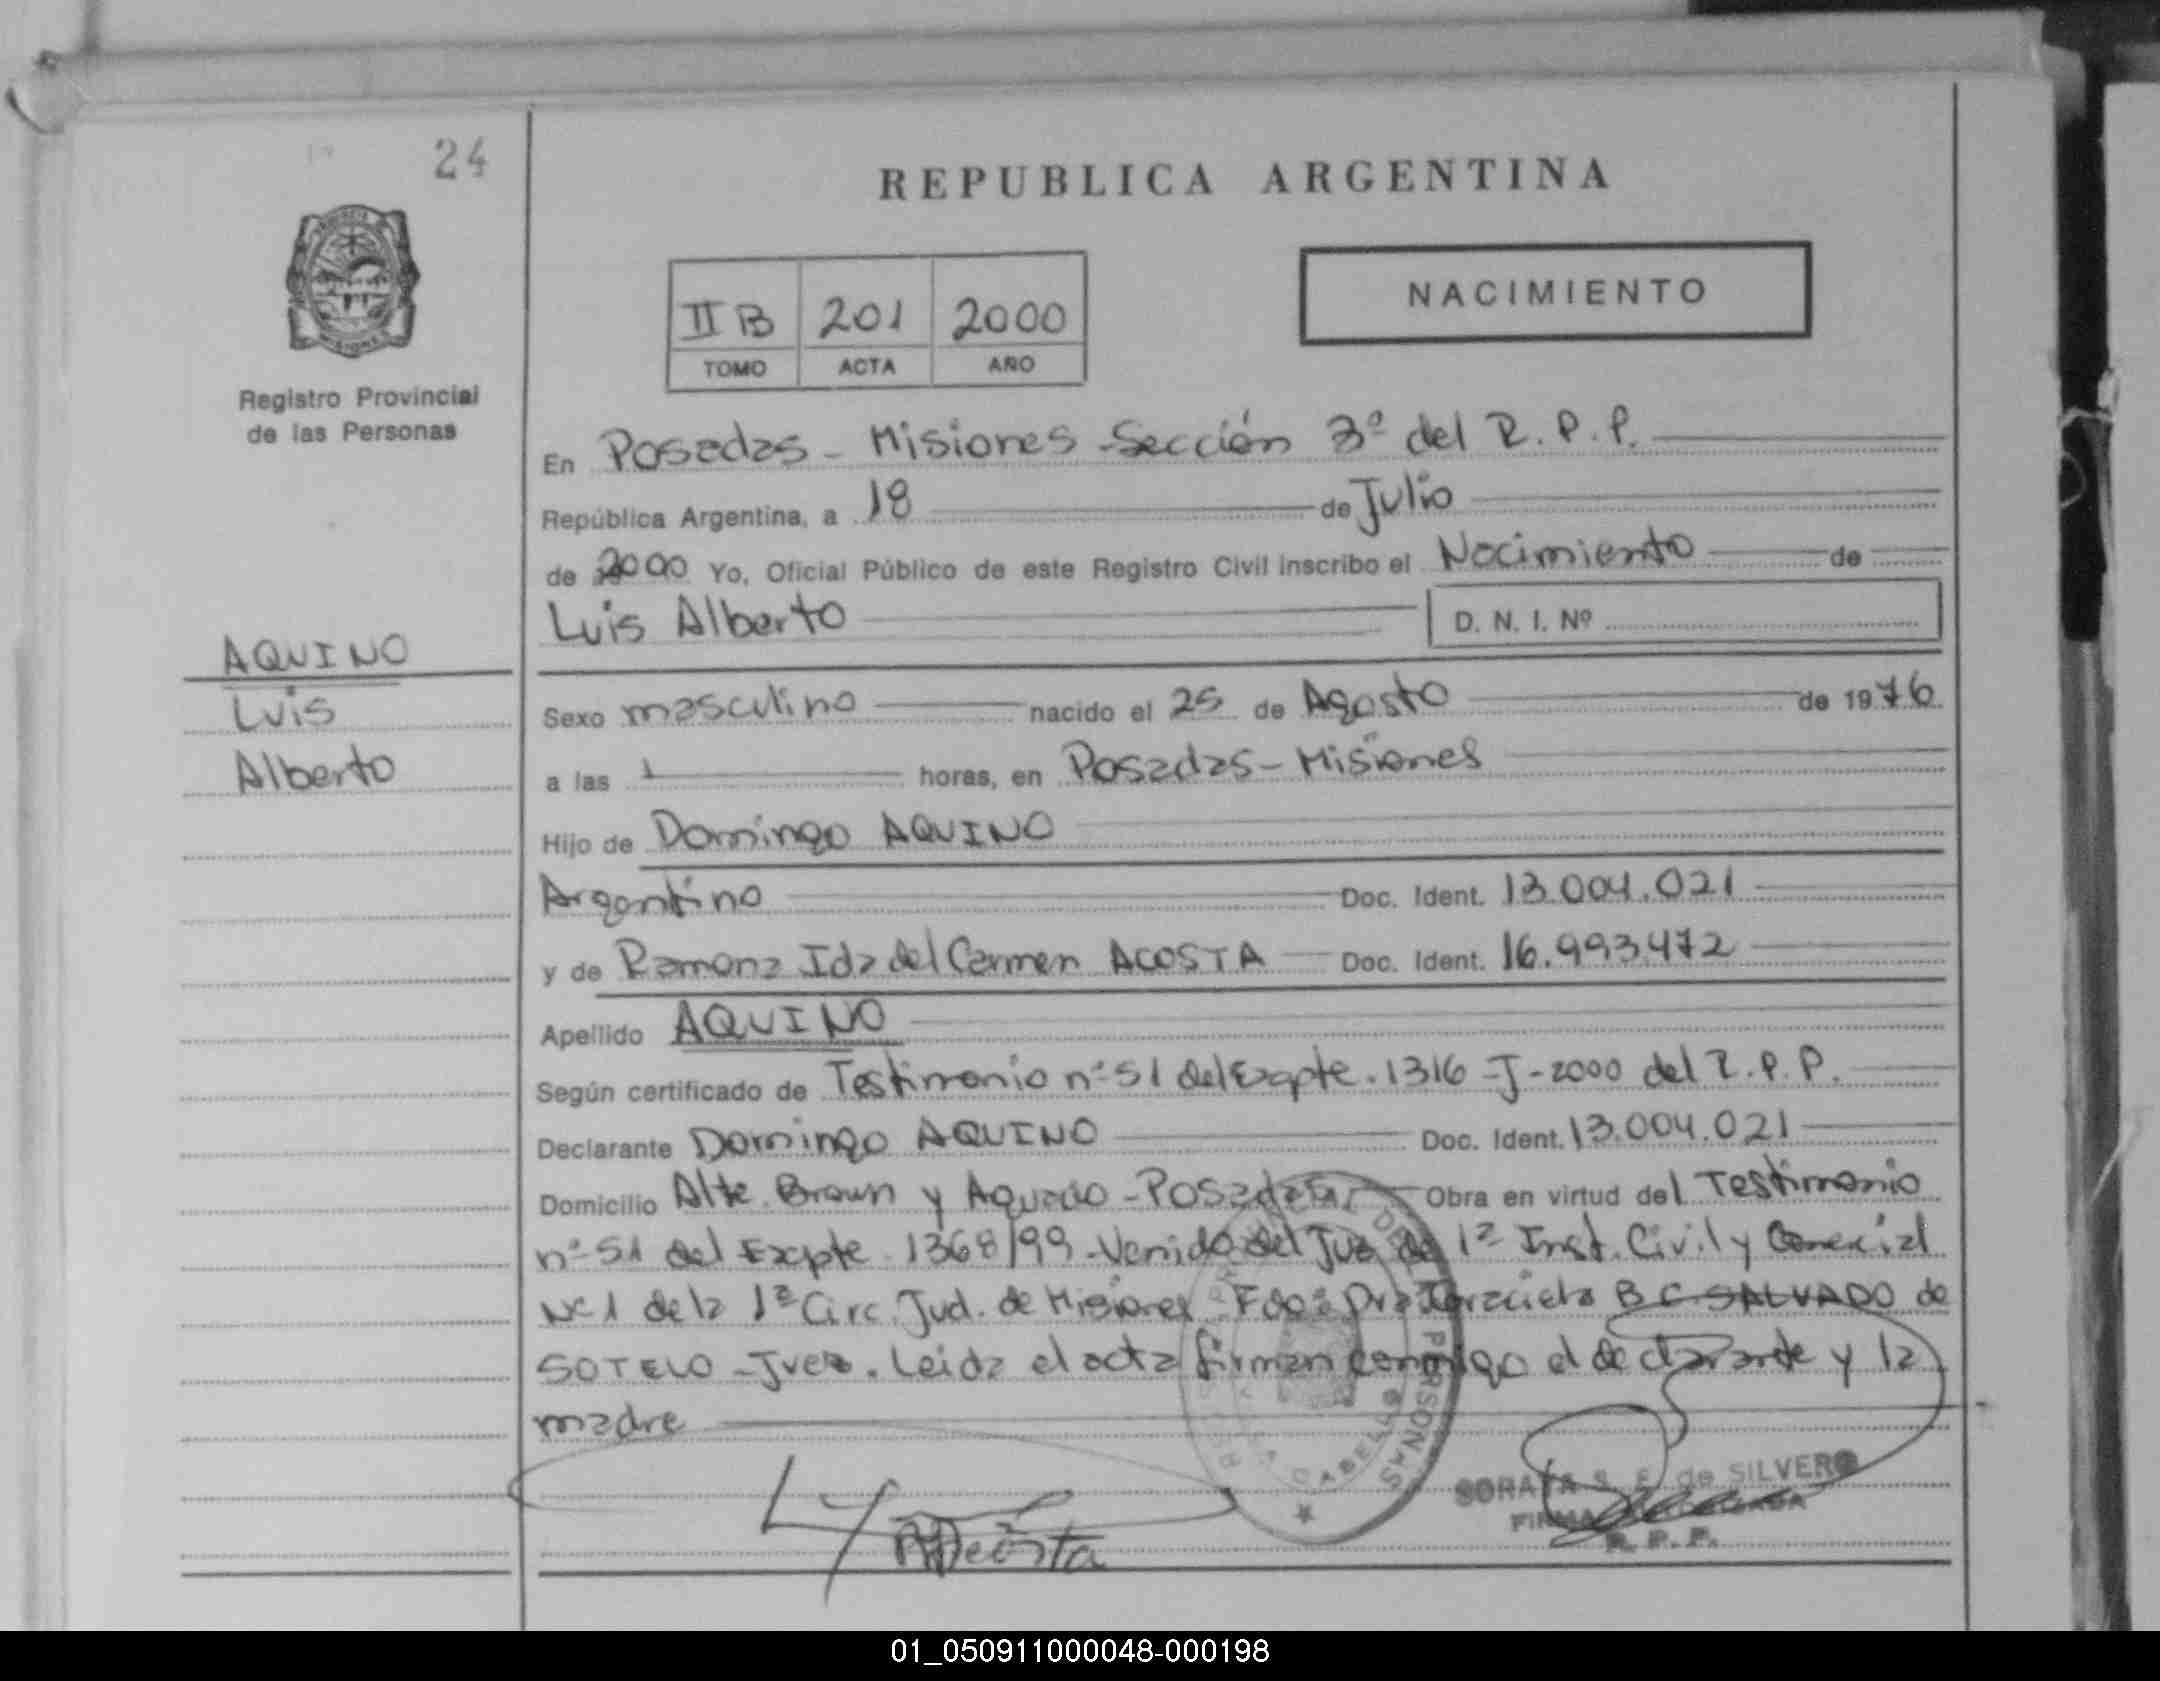 24
REPUBLICA ARGENTINA
NACIMIENTO
II B 201 2000
TOMO ACTA AÑO
Registro Provincial
de las Personas
En Posadas - Misiones - Sección 3ª del R. P. P.
República Argentina, a 18 de Julio
de 2000 Yo, Oficial Público de este Registro Civil inscribo el Nacimiento de
Luis Alberto D. N. I. Nº
AQUINO
Luis
Alberto
Sexo masculino nacido el 25 de Agosto de 1976
a las horas, en Posadas - Misiones
Hijo de Domingo AQUINO
Argentino Doc. Ident. 13.004.021
y de Ramona Ida del Carmen ACOSTA Doc. Ident. 16.993.472
Apellido AQUINO
Según certificado de Testimonio nº 51 del Expte. 1316 - J - 2000 del R. P. P.
Declarante Domingo AQUINO Doc. Ident. 13.004.021
Domicilio Alte. Brown y Aguado - Posadas Obra en virtud del Testimonio
nº 51 del Expte 1368/99 - Venido del Juz de 1ª Inst. Civil y Comercial
Nº 1 de la 1ª Circ. Jud. de Misiones - Fdo: Dra Graciela B C SALVADO de
SOTELO - Juez. Leida el acta firman conmigo el declarante y la
madre
CABELLO
PERSONAS
SORAYA S. E. de SILVERO
FIRMA
R. P. P.
Acosta
01_050911000048-000198